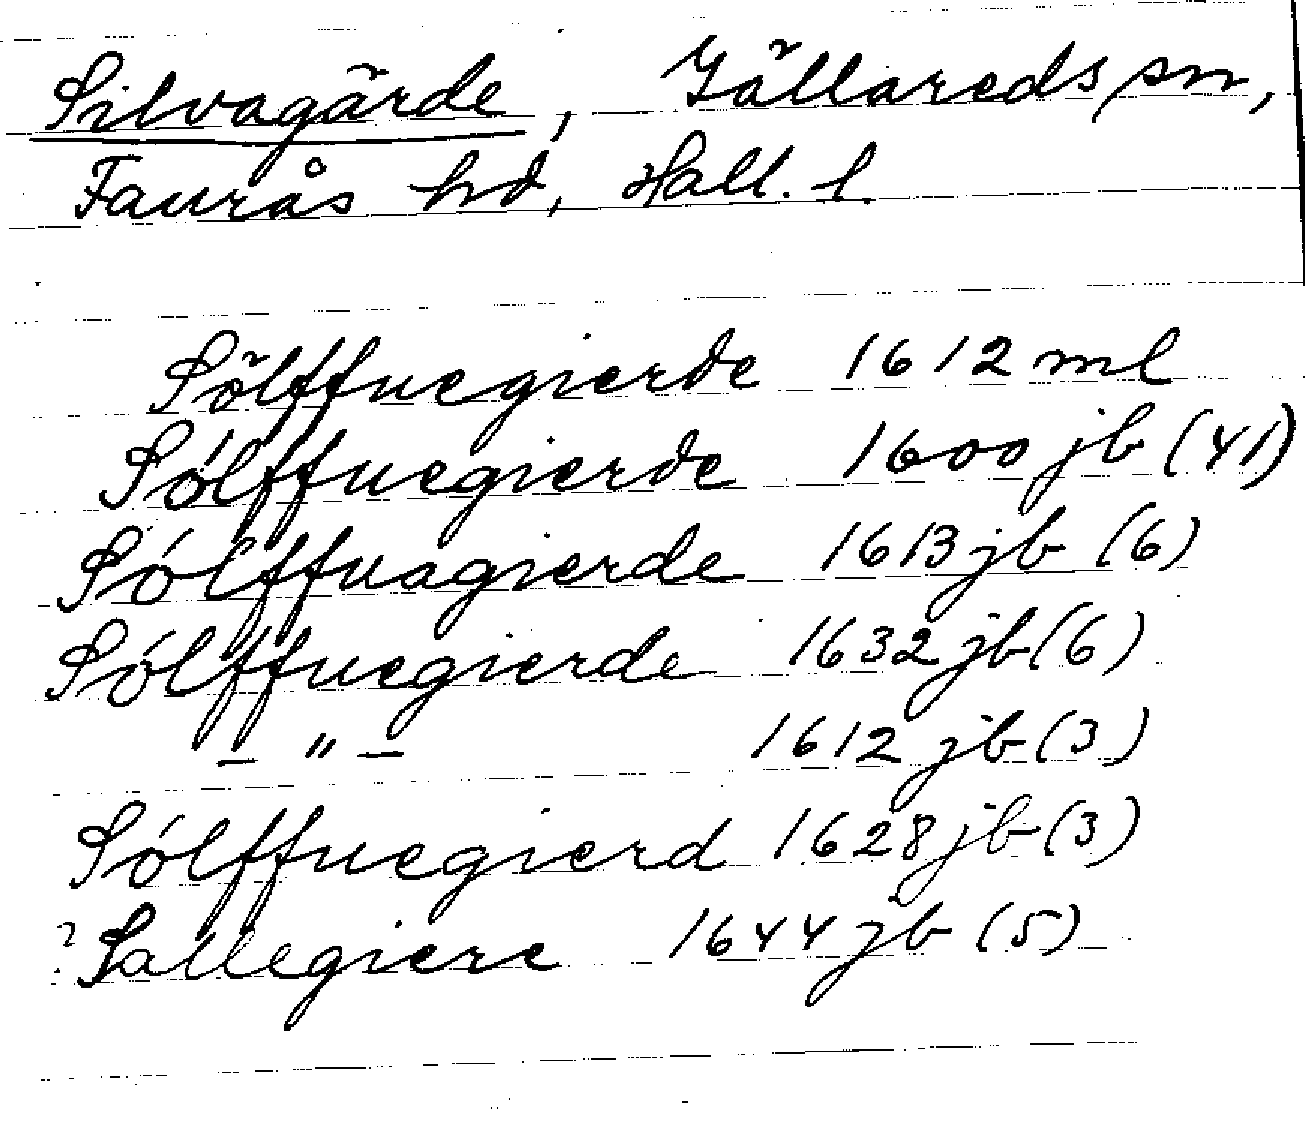 Silvagärde, Källareds sn,
Faurås hd, Hall. l.
Sölffuegierde 1612 ml
Sólffuegierde 1600 jb (41)
Sólffuagierde 1613 jb (6)
Sólffuegierde 1632 jb (6)
– " – 1612 jb (3)
Sólffuegierd 1628 jb (3)
? Sallegiere 1644 jb (5)